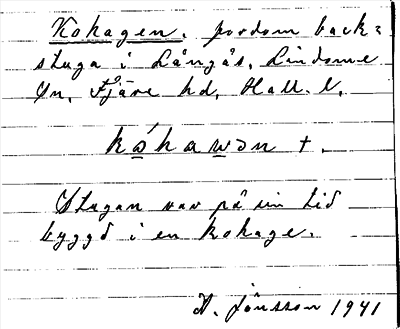 Kohagen, fordom back=
stuga i Långås, Lindome
sn, Fjäre hd, Hall. l.
kóhawən +.
Stugan var på sin tid
byggd i en kohage.
A. Jönsson 1941